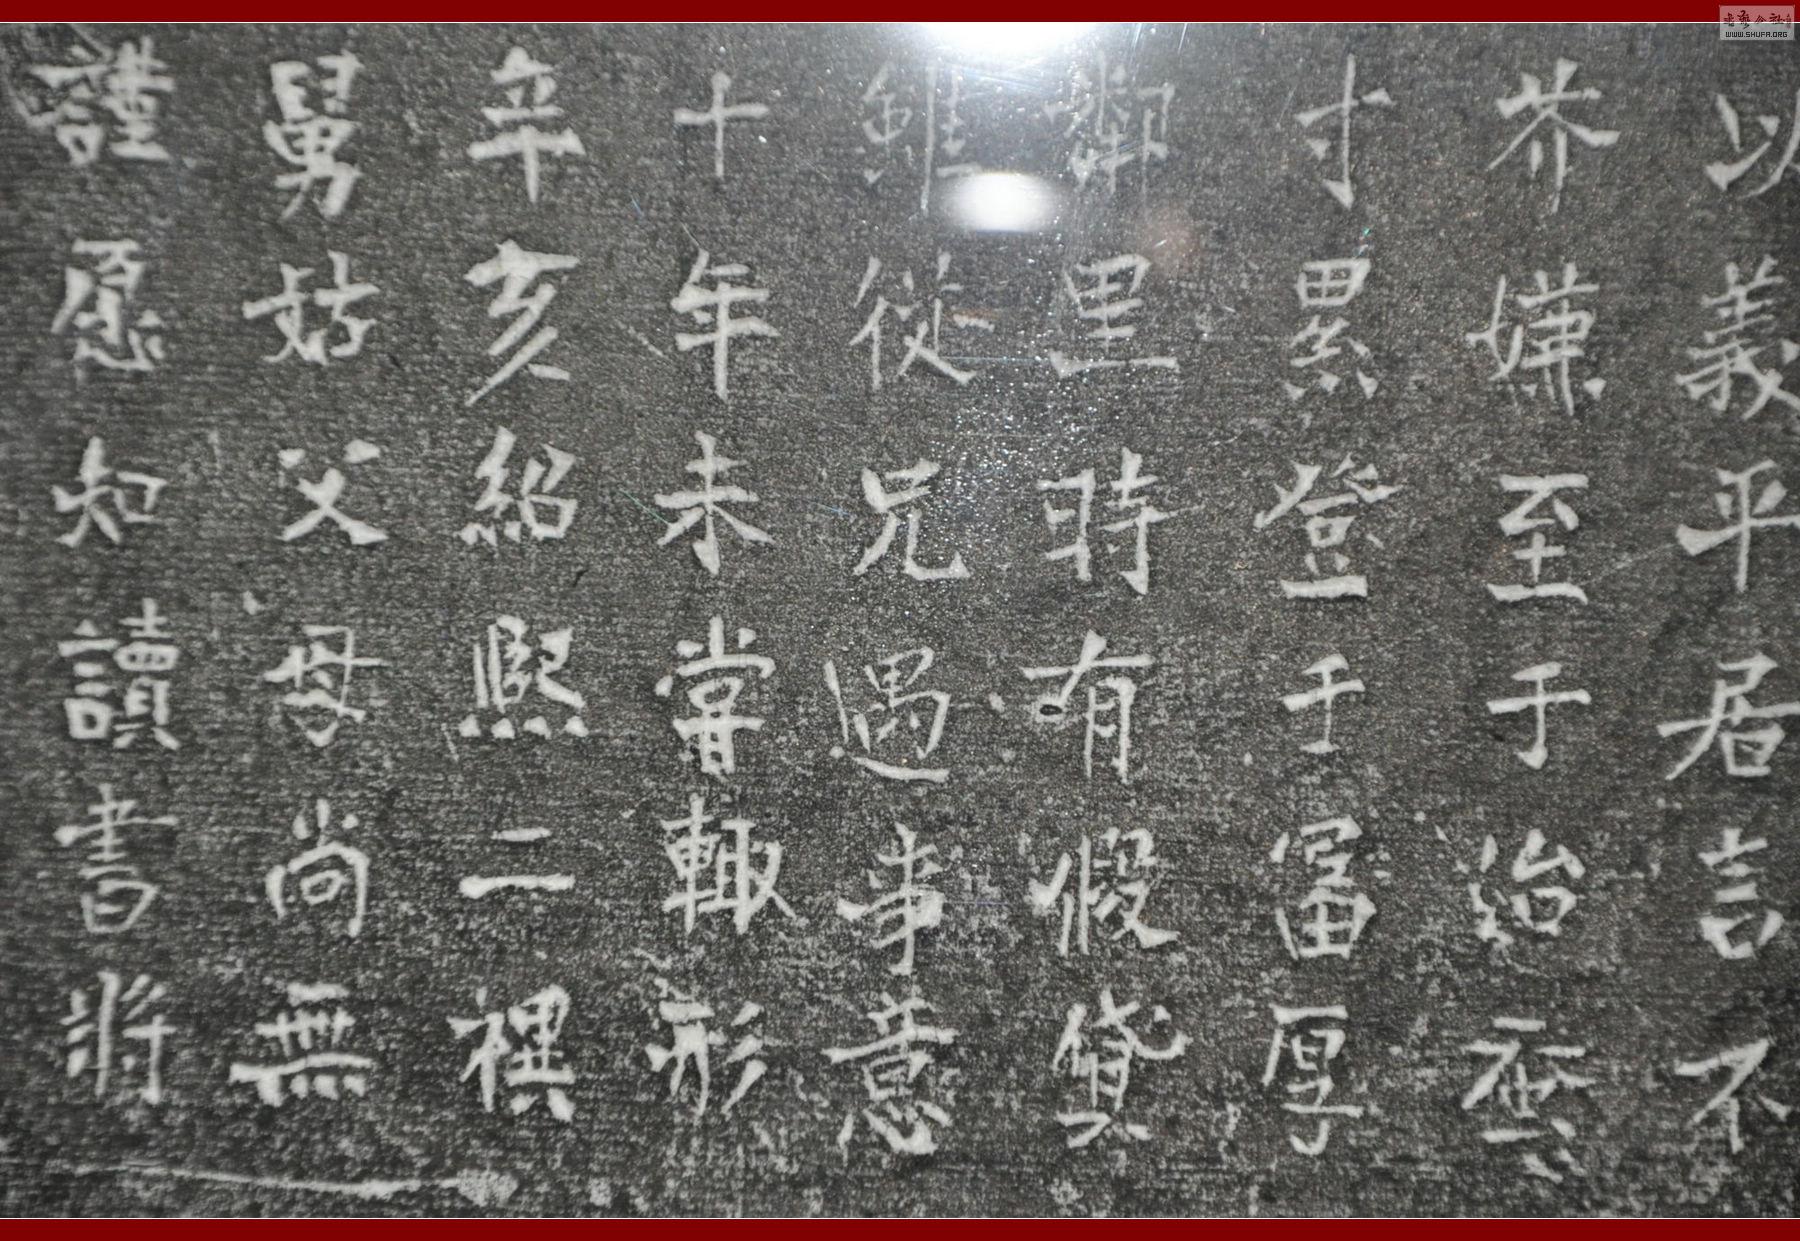 以義平居言不
芥嫌至于治
寸累登于富厚
鄉里時有假貸
雖從兄遇事意
十年未嘗輒形
辛亥紹熙二禩
舅姑父母尚無
謹愿知讀書將
WWW.SHUFA.ORG